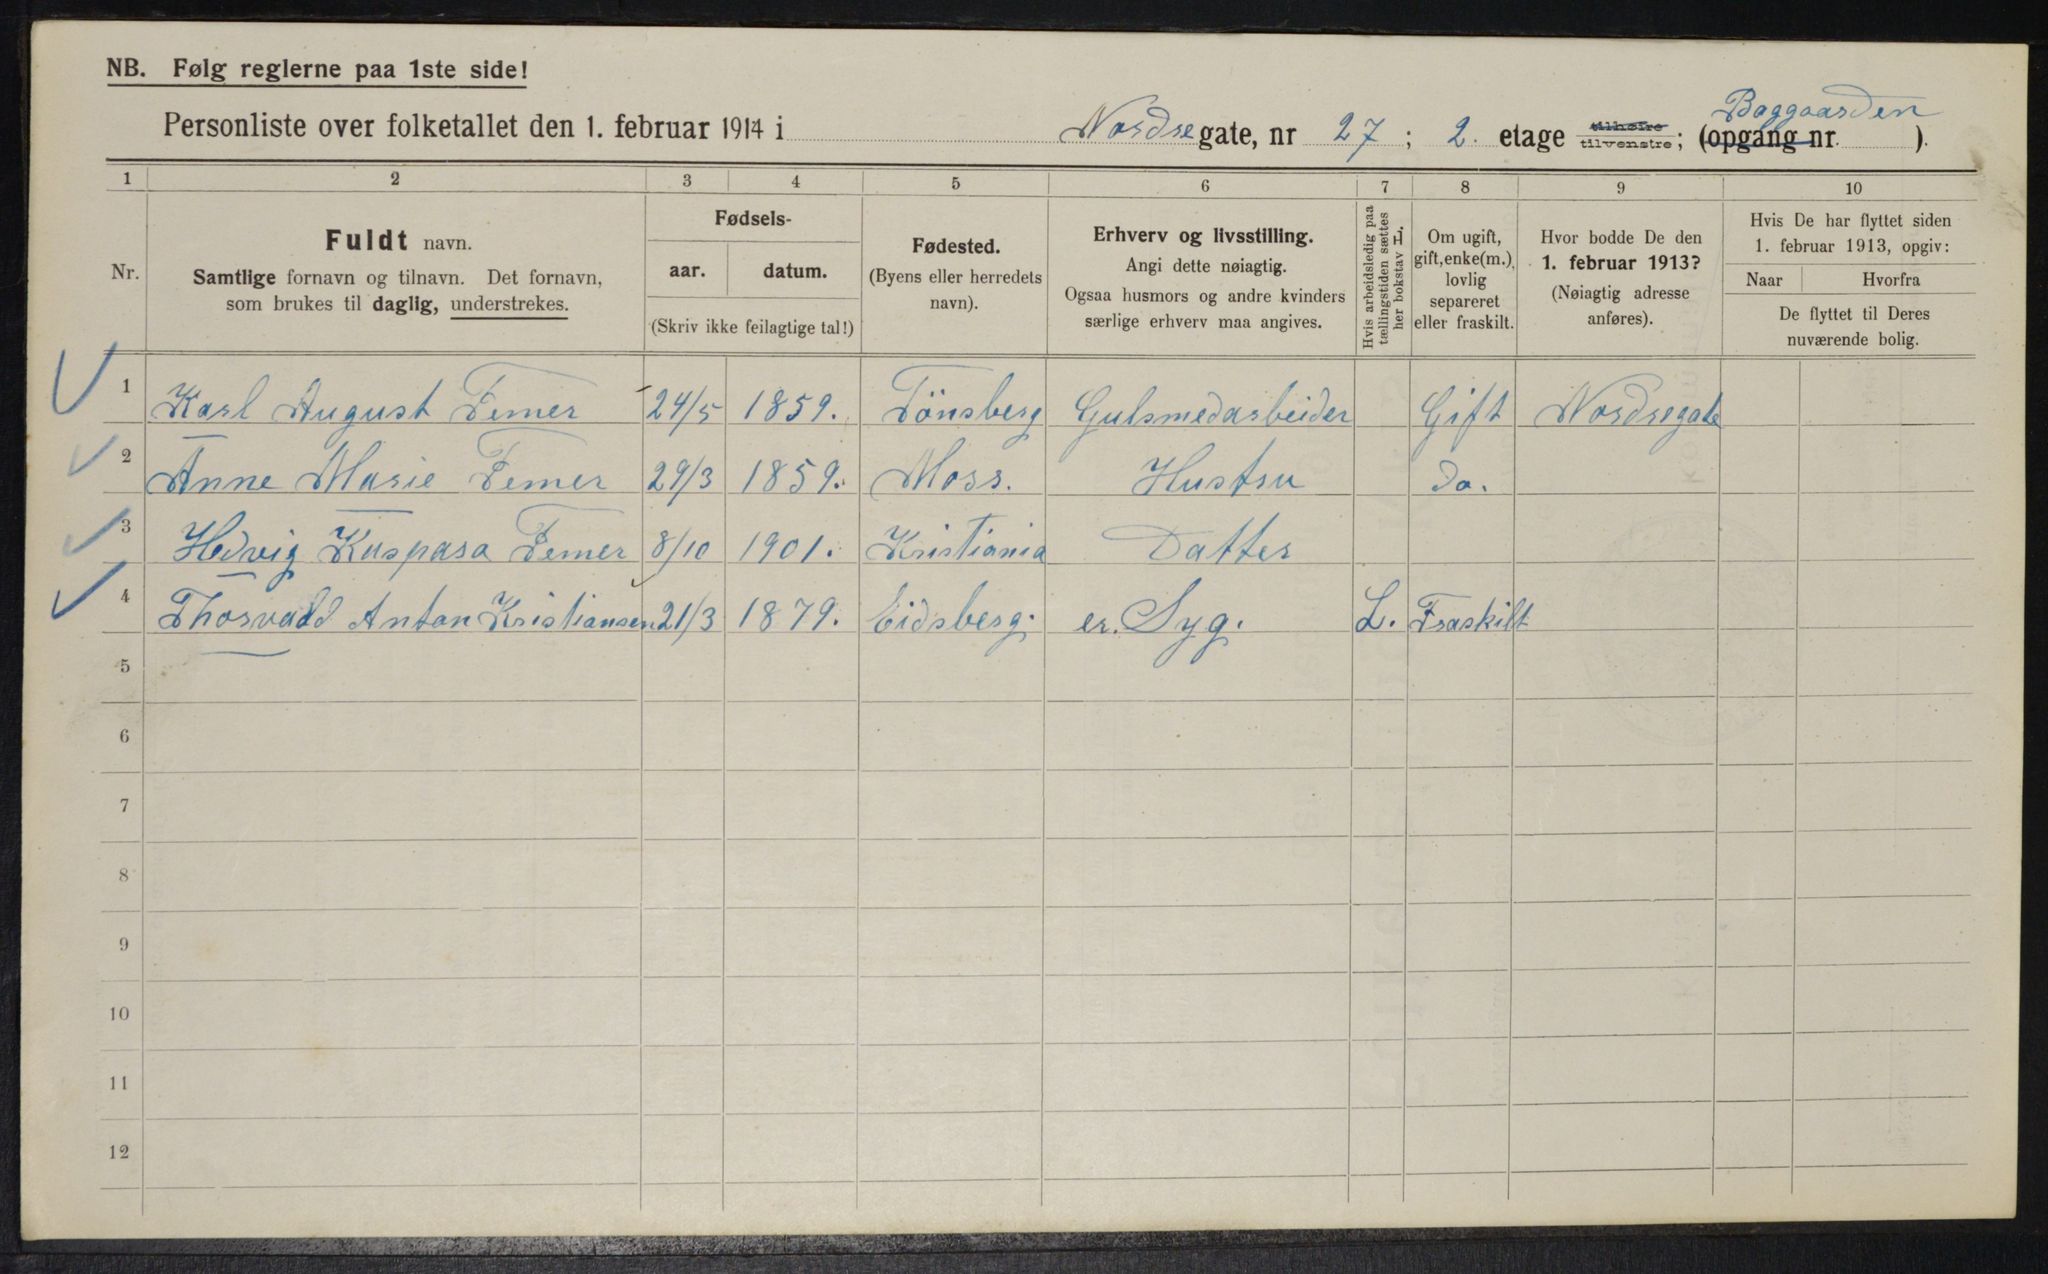 NB. Følg reglerne paa 1ste side!
Baggaarden
Personliste over folketallet den 1. februar 1914 i Nordre gate, nr 27; 2. etage tilhøire tilvenstre; (opgang nr. ).
1 2 3 4 5 6 7 8 9 10
Nr.
Fuldt navn.
Samtlige fornavn og tilnavn. Det fornavn,
som brukes til daglig, understrekes.
Fødsels-
aar. datum.
(Skriv ikke feilagtige tal!)
Fødested.
(Byens eller herredets
navn).
Erhverv og livsstilling.
Angi dette nøiagtig.
Ogsaa husmors og andre kvinders
særlige erhverv maa angives.
Hvis arbeidsledig paa
tællingstiden sættes
her bokstav L.
Om ugift,
gift, enke(m.),
lovlig
separeret
eller fraskilt.
Hvor bodde De den
1. februar 1913?
(Nøiagtig adresse
anføres).
Hvis De har flyttet siden
1. februar 1913, opgiv:
Naar Hvorfra
De flyttet til Deres
nuværende bolig.
1 Karl August Femer 24/5 1859. Tönsberg Gulsmedarbeider Gift Nordregate
2 Anne Marie Femer 29/3 1859. Moss. Hustru do.
3 Hedvig Kaspara Femer 8/10 1901. Kristiania Datter
4 Thorvald Anton Kristiansen 21/3 1879. Eidsberg. er. Syg. L. Fraskilt
5
6
7
8
9
10
11
12